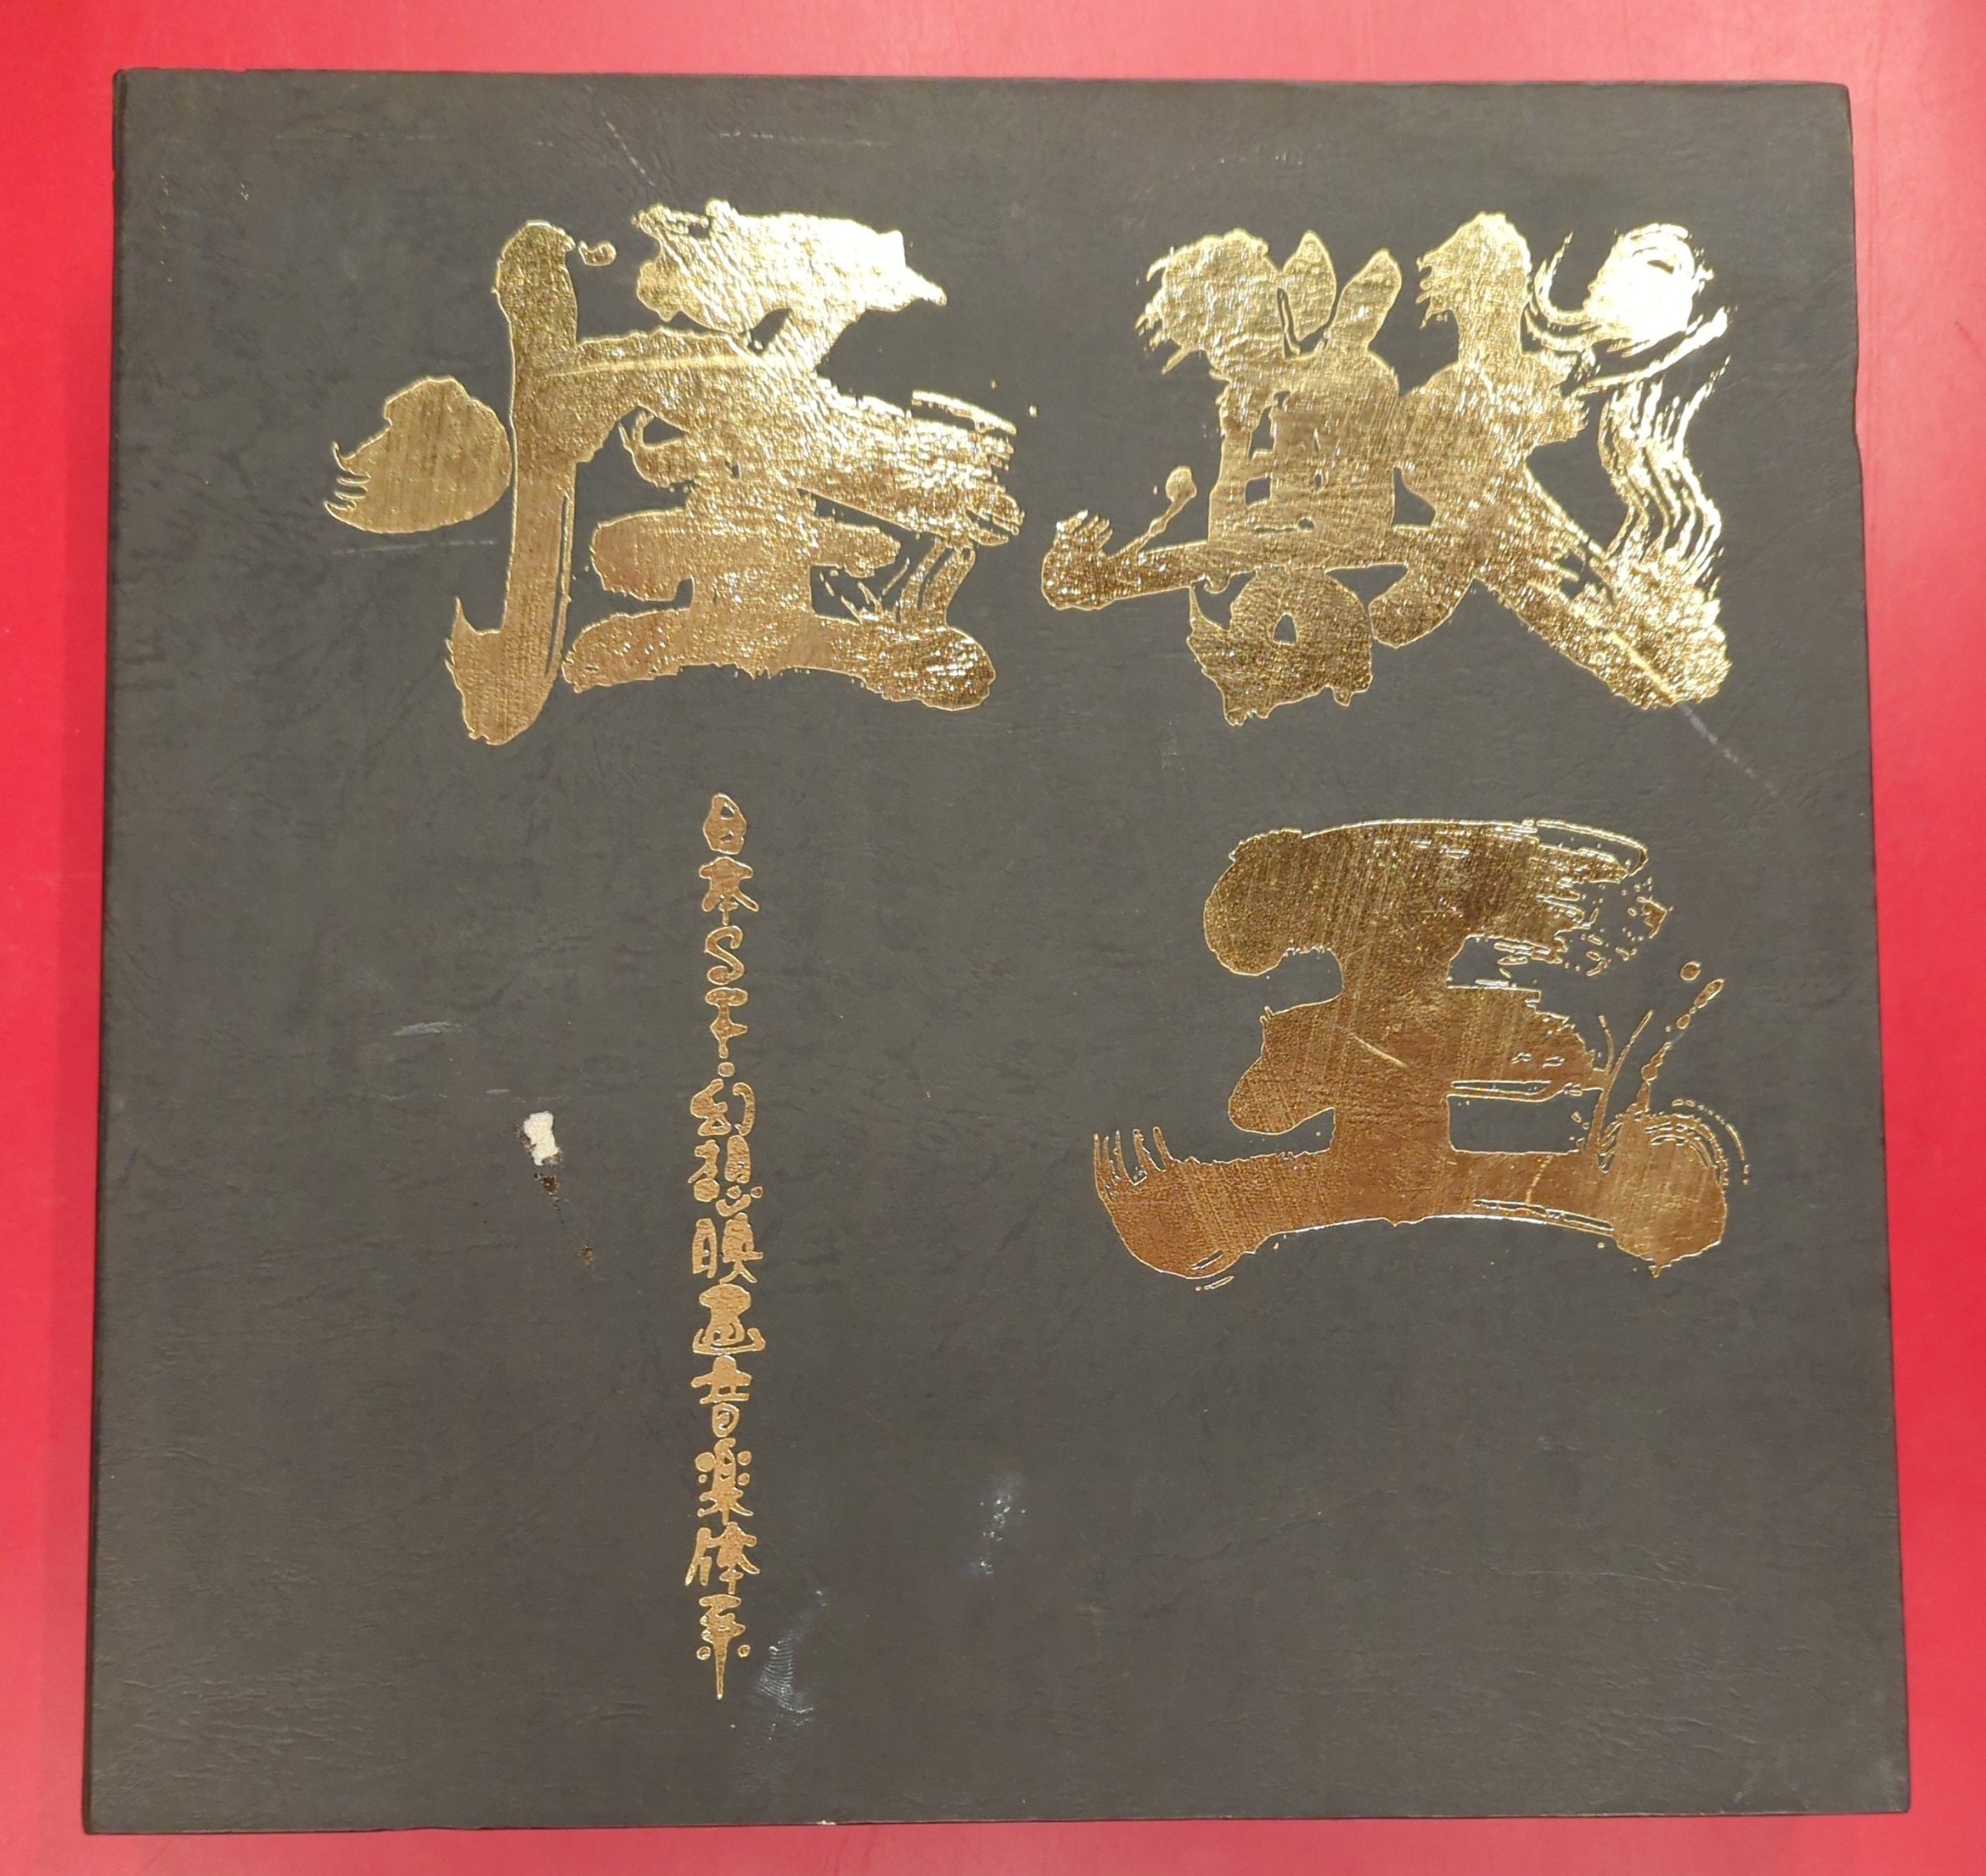 怪獣
王
日本SF・幻想映画音楽体系